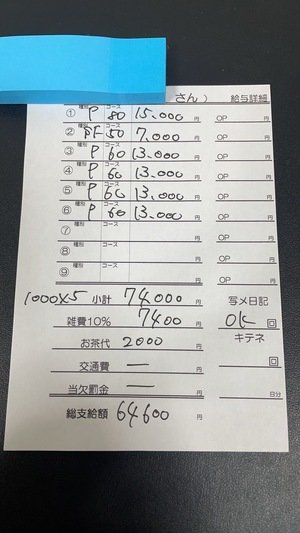 さん） 給与詳細
① 種別 P コース 80 15.000 円 OP 円
② 種別 PF コース 50 7.000 円 OP 円
③ 種別 P コース 60 13.000 円 OP 円
④ 種別 P コース 60 13,000 円 OP 円
⑤ 種別 P コース 60 13,000 円 OP 円
⑥ 種別 P コース 60 13.000 円 OP 円
⑦ 種別 コース 円 OP 円
⑧ 種別 コース 円 OP 円
⑨ 種別 コース 円 OP 円
1000×5 小計 74000 円 写メ日記
雑費10% 7400 円 OK 回
お茶代 2000 円 キテネ
交通費 ー 円 回
当欠罰金 ー 円 日分
総支給額 64600 円